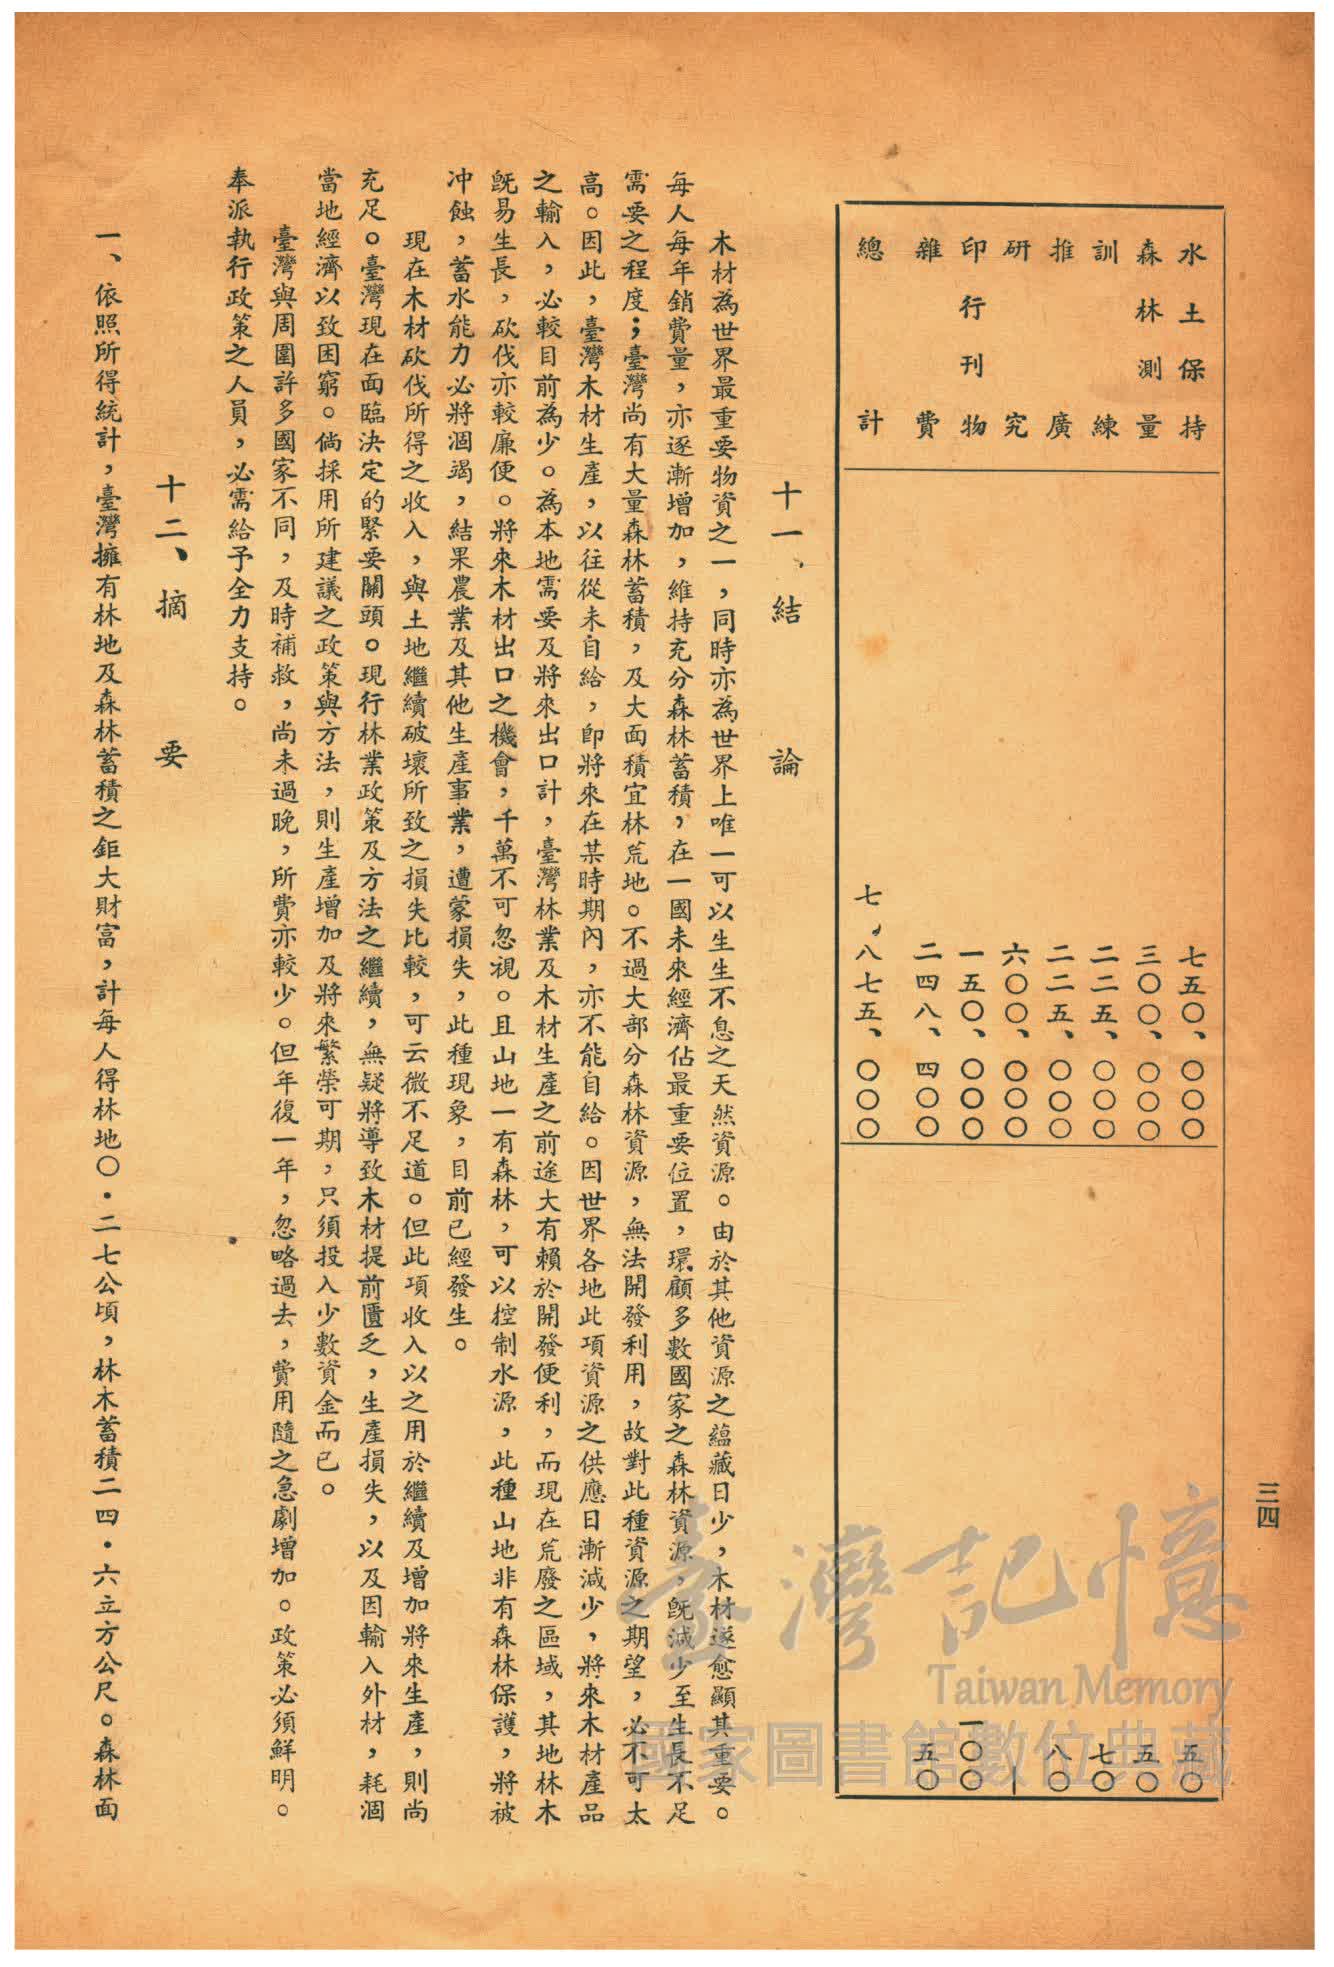 三四
水土保持 七五〇、〇〇〇 五〇
森林測量 三〇〇、〇〇〇 五〇
訓練 二二五、〇〇〇 七〇
推廣 二二五、〇〇〇 八〇
研究 六〇〇、〇〇〇 —
印行刊物 一五〇、〇〇〇 一〇〇
雜費 二四八、四〇〇 五〇
總計 七、八七五、〇〇〇
十一、結論
木材為世界最重要物資之一，同時亦為世界上唯一可以生生不息之天然資源。由於其他資源之蘊藏日少，木材遂愈顯其重要。
每人每年銷費量，亦逐漸增加，維持充分森林蓄積，在一國未來經濟佔最重要位置，環顧多數國家之森林資源，既減少至生長不足
需要之程度；臺灣尚有大量森林蓄積，及大面積宜林荒地。不過大部分森林資源，無法開發利用，故對此種資源之期望，必不可太
高。因此，臺灣木材生產，以往從未自給，即將來在某時期內，亦不能自給。因世界各地此項資源之供應日漸減少，將來木材產品
之輸入，必較目前為少。為本地需要及將來出口計，臺灣林業及木材生產之前途大有賴於開發便利，而現在荒廢之區域，其地林木
既易生長，砍伐亦較廉便。將來木材出口之機會，千萬不可忽視。且山地一有森林，可以控制水源，此種山地非有森林保護，將被
冲蝕，蓄水能力必將涸竭，結果農業及其他生產事業，遭蒙損失，此種現象，目前已經發生。
現在木材砍伐所得之收入，與土地繼續破壞所致之損失比較，可云微不足道。但此項收入以之用於繼續及增加將來生產，則尚
充足。臺灣現在面臨決定的緊要關頭。現行林業政策及方法之繼續，無疑將導致木材提前匱乏，生產損失，以及因輸入外材，耗涸
當地經濟以致困窮。倘採用所建議之政策與方法，則生產增加及將來繁榮可期，只須投入少數資金而已。
臺灣與周圍許多國家不同，及時補救，尚未過晚，所費亦較少。但年復一年，忽略過去，費用隨之急劇增加。政策必須鮮明。
奉派執行政策之人員，必需給予全力支持。
十二、摘要
一、依照所得統計，臺灣擁有林地及森林蓄積之鉅大財富，計每人得林地〇・二七公頃，林木蓄積二四・六立方公尺。森林面
臺灣記憶
Taiwan Memory
國家圖書館數位典藏